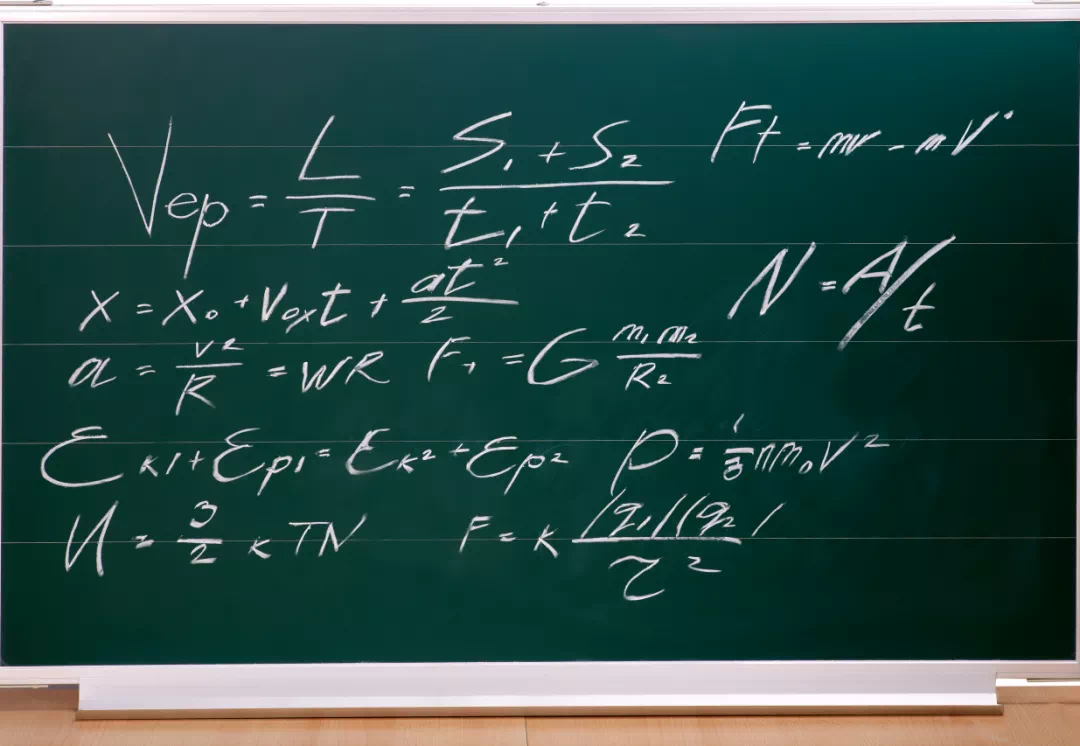 Vер = L/T = (S₁ + S₂)/(t₁ + t₂)
Ft = mv - mV°
x = x₀ + V₀ₓt + at²/2
N = A/t
a = v²/R = WR
F₁ = G m₁m₂/R₂
Eк1 + Ep1 = Eк² + Ep²
P = 1/3 nm₀v²
И = 3/2 кTN
F = к |q₁||q₂|/τ²